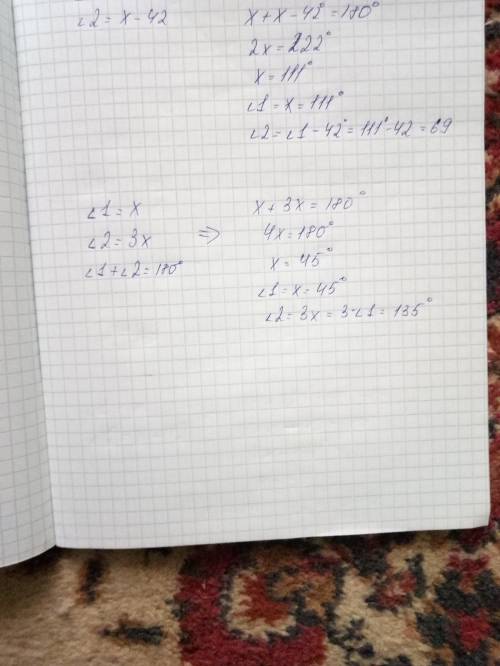 ∠2 = x - 42
x + x - 42° = 180°
2x = 222°
x = 111°
∠1 = x = 111°
∠2 = ∠1 - 42° = 111° - 42 = 69
∠1 = x
∠2 = 3x
∠1 + ∠2 = 180°
⇒
x + 3x = 180°
4x = 180°
x = 45°
∠1 = x = 45°
∠2 = 3x = 3·∠1 = 135°